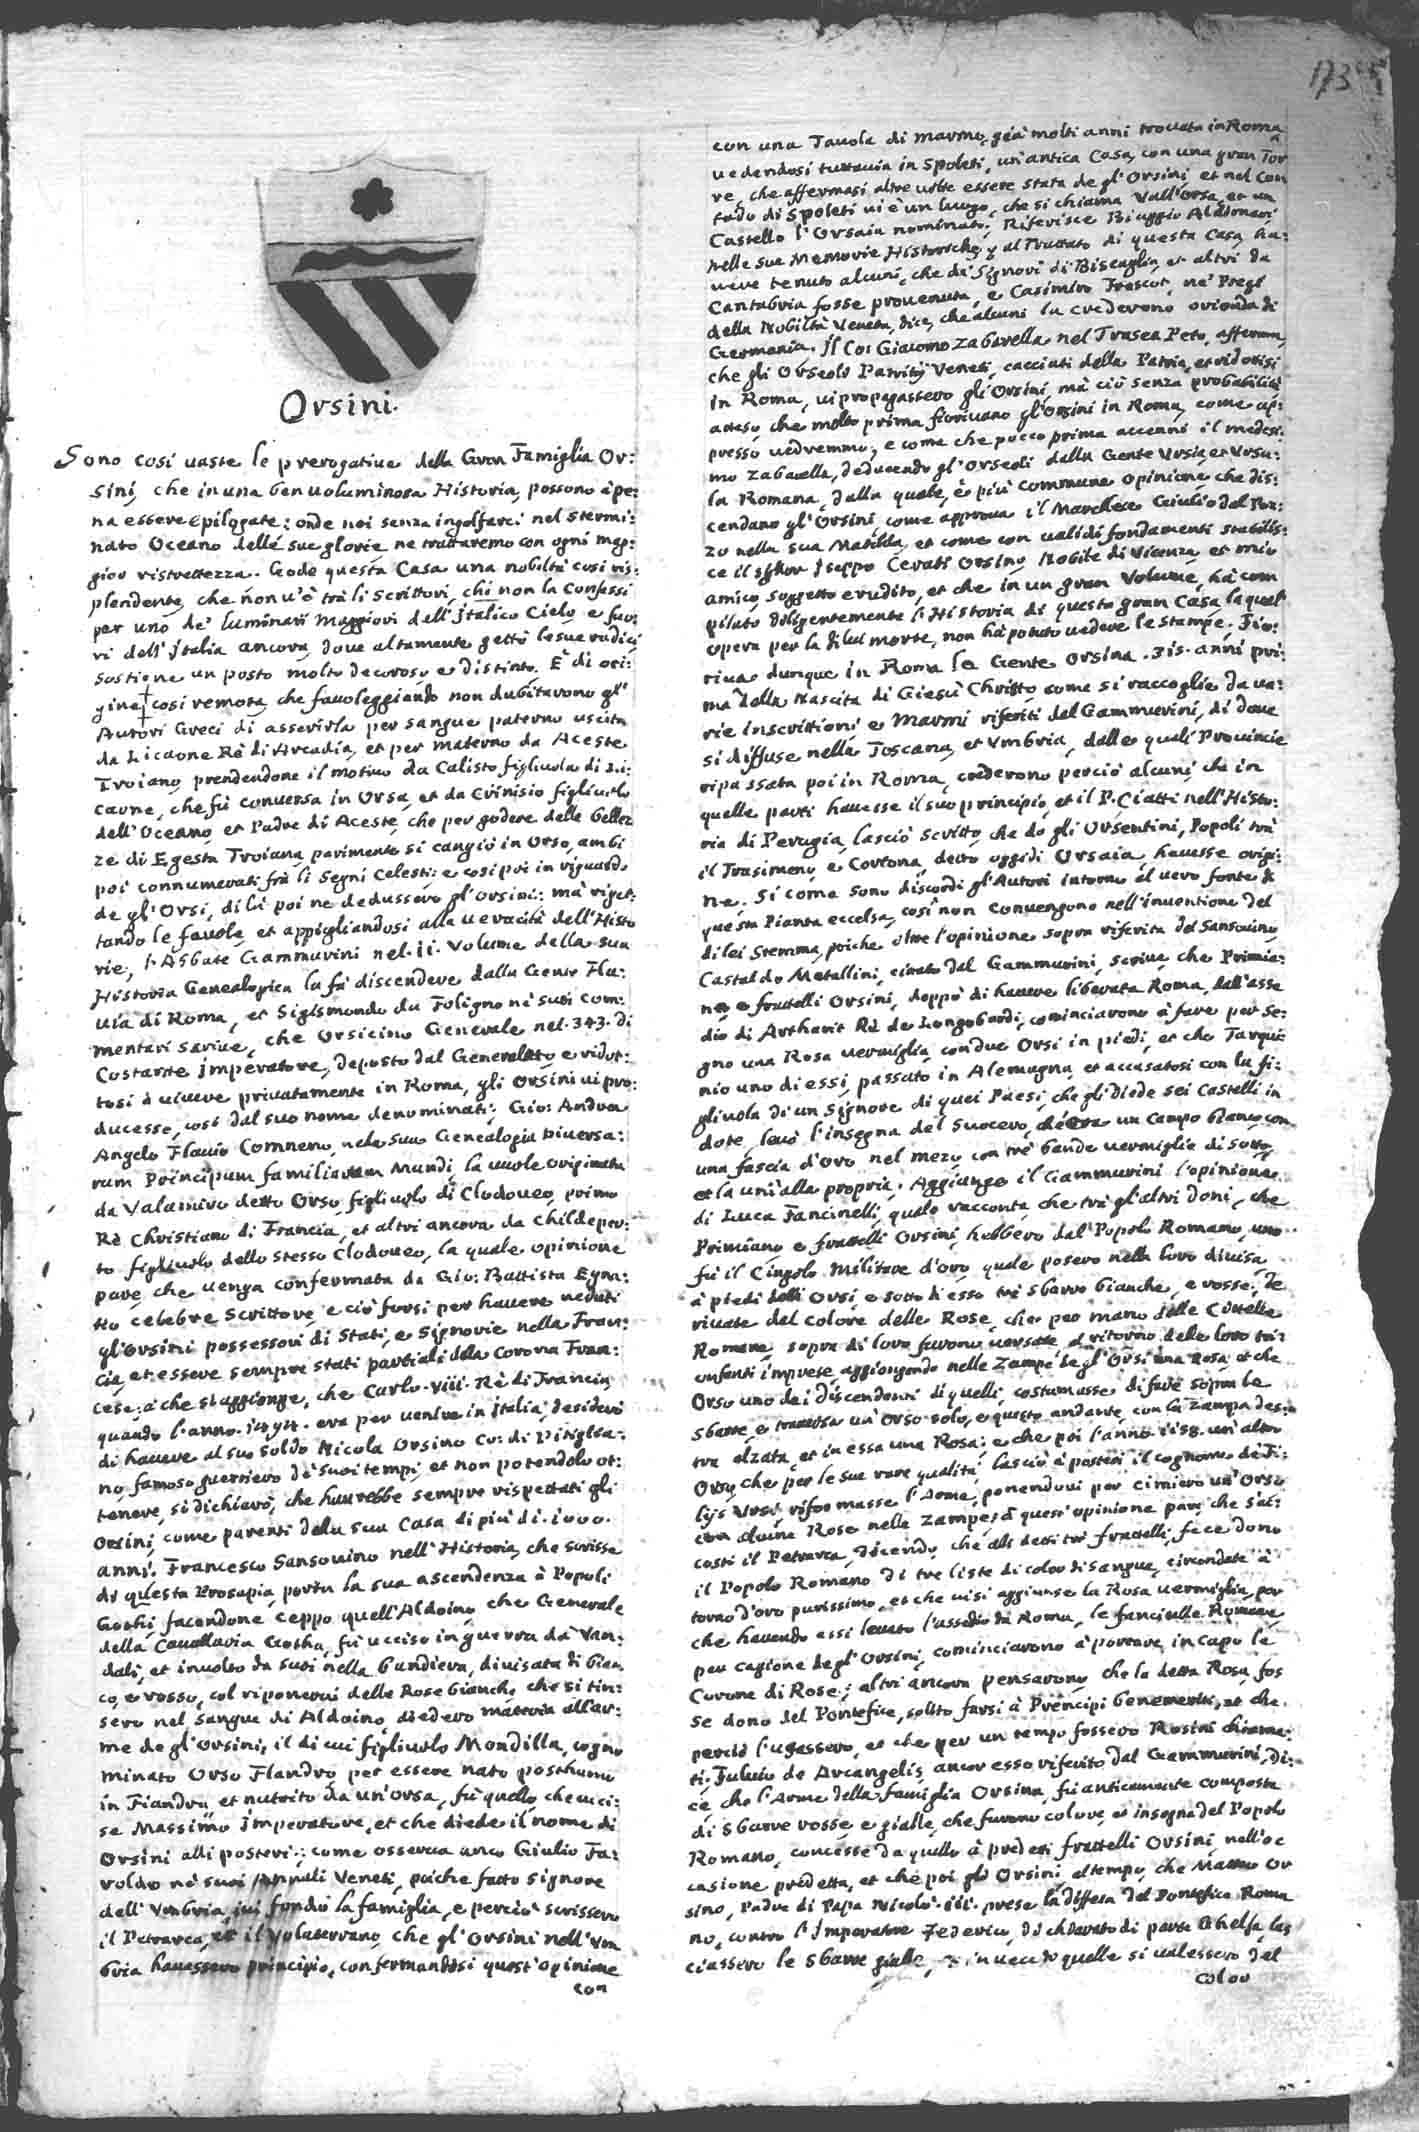 Orsini.
Sono così uaste le prerogatiue della Gran Famiglia Or:
sini, che in una ben uoluminosa Historia, possono à pe:
na essere epilogate; onde noi senza ingolfarci nel stermi:
nato Oceano delle sue glorie ne trattaremo con ogni mag:
gior ristrettezza. Gode questa Casa una nobiltà così ris:
plendente, che non u'è trà li scrittori, chi non la Confessi
per uno de' luminari Maggiori dell'Italico Cielo, e fuo:
ri dell'Italia ancora, doue altamente gettò le sue radici
sostiene un posto molto decoroso e distinto. È di ori:
gine così remota, che fauoleggiando non dubitarono gl'
Autori Greci di asserirla per sangue paterno uscita
da Licaone Rè di Arcadia, et per materno da Aceste
Troiano, prendendone il motiuo da Calisto figliuola di Li:
caone, che fù conuersa in Orsa, et da Crinisio figliuolo
dell'Oceano, et Padre di Aceste, che per godere delle bellez
ze di Egesta Troiana, parimente si cangiò in Orso, ambi
poi connumerati frà li Segni Celesti; e così poi in riguardo
de gl'Orsi, di là poi ne dedussero gl'Orsini: mà riget:
tando le fauole, et appigliandosi alla ueracità dell'Histo
rie, l'Abbate Gammurini nel .ii. Volume della sua
Historia Genealogica la fà discendere dalla Gente Fla:
uia di Roma, et Sigismondo da Foligno ne suoi Com:
mentari scriue, che Orsicino Generale nel .343. di
Costante Imperatore, deposto dal Generalato e ridot:
tosi à uiuere priuatamente in Roma, gli Orsini ui pro:
ducesse, così dal suo nome denominati; Gio: Andrea
Angelo Flauio Comneno, nela sua Genealogia Diuersa:
rum Principum familiarum Mundi, la uuole originata
da Valamiro detto Orso, figliuolo di Clodoueo, primo
Rè Christiano di Francia, et altri ancora da Childeper:
to figliuolo dello stesso Clodoueo, la quale opinione
pare, che uenga confermata da Gio: Battista Egna:
tio celebre scrittore, e ciò forsi per hauere ueduti
gl'Orsini possessori di Stati, e Signorie nella Fran:
cia, et essere sempre stati partiali dela Corona Fran:
cese; à che si aggionge, che Carlo .viii. Rè di Francia,
quando l'anno .1494. era per uenire in Italia, desiderò
di hauere al suo soldo Nicola Orsino Co: di Pitiglia:
no, famoso guerriero de' suoi tempi, et non potendolo ot:
tenere, si dichiarò, che haurebbe sempre rispettati gli
Orsini, come parenti dela sua Casa di più di .1000.
anni. Francesco Sansouino nell'Historia, che scrisse
di questa Prosapia, porta la sua ascendenza à Popoli
Gothi, facendone ceppo quell'Aldoino, che Generale
della Cauallaria Gotha, fù ucciso in guerra da Van:
dali, et inuolto da suoi nella bandiera, diuisata di bian
co, e rosso, col riponerui delle Rose bianche, che si tin:
sero nel sangue di Aldoino, diedero materia all'ar:
me de gl'Orsini, il di cui figliuolo Mondilla, cogno
minato Orso Flandro per essere nato posthumo
in Fiandra, et nutrito da un'orsa, fù quello che ucci:
se Massimo Imperatore, et che diede il nome di
Orsini alli posteri; come osserua anco Giulio Fa:
roldo ne' suoi Annali Veneti, poiche fatto Signore
dell'Vmbria, iui fondò la famiglia, e perciò scrissero
il Petrarca, et il Volaterrano, che gl'Orsini nell'Vm
bria hauessero principio, confermandosi quest'opinione
con
con una Tauola di marmo, già molti anni trouata in Roma,
uedendosi tuttauia in Spoleti, un'antica Casa, con una gran Tor
re, che affermasi altre uolte essere stata de gl'Orsini, et nel Con
tado di Spoleti ui è un luogo, che si chiama Vall'Orsa, et un
Castello l'Orsaia nominato. Riferisce Biaggio Aldimari
nelle sue Memorie Historiche, al Trattato di questa Casa, ha:
uere tenuto alcuni, che da Signori di Biscaglia, et altri da
Cantabria fosse prouenuta, e Casimiro Frescot, ne' Pregi
della Nobiltà Veneta, dice, che alcuni la crederono orionda di
Germania. Il Co: Giacomo Zabarella nel Trasea Peto, afferma,
che gli Orseoli Patritij Veneti, cacciati della Patria, et ridottisi
in Roma, ui propagassero gli Orsini, mà ciò senza probabilità
atteso che molto prima fioriuano gl'Orsini in Roma, come ap:
presso uedremmo; e come che pocco prima accennì il medesi:
mo Zabarella, deducendo gl'Orseoli dalla Gente Vrsia, et Vrsu:
la Romana, dalla quale, è più commune opinione che dis:
cendano gl'Orsini, come approua il Marchese Giulio dal Poz:
zo nella sua Matilda, et come con ualidi fondamenti stabilis:
ce il Sig.r Iseppo Cerati Orsino, Nobile di Vicenza, et mio
amico, soggetto erudito, et che in un gran Volume, hà com
pilato diligentemente l'Historia di questa gran Casa, la qual'
opera per la di lui morte, non hà potuto uedere le stampe. Fio:
riua dunque in Roma la Gente Orsina .315. anni pri:
ma della Nascita di Giesù Christo, come si raccoglie da ua:
rie inscrittioni, e Marmi riferiti dal Gammurini, di doue
si diffuse nella Toscana, et Vmbria, dalle quali Prouincie
ripassata poi in Roma, crederono perciò alcuni che in
quelle parti hauesse il suo principio, et il P. Ciatti nell'Histo:
ria di Perugia, lasciò scritto, che da gli Orsentini, Popoli trà
il Trasimeno, e Cortona, detto oggidì Orsaia, hauesse origi:
ne. Si come sono discordi gl'Autori intorno al uero fonte di
questa Pianta eccelsa, così non conuengono nell'inuentione del
di lei Stemma, poiche oltre l'opinione sopra riferita del Sansouino,
Castaldo Metallini, citato dal Gammurini, scriue, che Primia:
no e fratelli Orsini, doppò di hauere liberata Roma, dall'asse
dio di Autharit Rè de Longobardi, cominciarono à fare per Se:
gno una Rosa uermiglia, con due Orsi in piedi, et che Tarqui
nio uno di essi, passato in Alemagna, et accasatosi con la fi:
gliuola di un Signore di quei Paesi, che gli diede sei Castelli in
dote, leuò l'insegna del Suocero, ch'era un Campo bianco, con
una fascia d'oro nel mezo, con trè bande uermiglie di sotto,
et la unì alla propria. Aggiunge il Gammurini l'opinione
di Luca Fancinelli, quale racconta, che trà gl'altri doni, che
Primiano, e fratelli Orsini, hebbero dal Popolo Romano, uno
fù il Cingolo Militare d'oro, quale posero nella loro diuisa
à piedi delli Orsi, e sotto d'esso trè sbarre bianche, e rosse, de
riuate dal colore delle Rose, che per mano delle Cittelle
Romane, sopra di loro furono uersate al ritorno delle loro tri:
onfanti imprese, aggiongendo nelle Zampe de gl'Orsi una Rosa, et che
Orso uno dei discendenti di quelli, costumasse di fare sopra le
sbarre, e trauersa un'Orso solo, e questo andante, con la zampa des:
tra alzata, et in essa una Rosa; e che poi l'anno .1158. un'altro
Orso, che per le sue rare qualità, lasciò à posteri il cognome de Fi:
lijs Vrsi, riformasse l'Arme, ponendoui per cimiero un'Orso
con alcune Rose nelle zampe; à quest'opinione pare, che s'ac:
costi il Petrarca, dicendo, che alli detti trè fratelli, fece dono
il Popolo Romano di tre liste di color di sangue, circondate à
torno d'oro purissimo, et che ui si aggiunse la Rosa uermiglia, per
che hauendo essi leuato l'assedio da Roma, le fanciulle Romane,
per cagione degl'Orsini, cominciarono à portare, in capo le
Corone di Rose; altri ancora pensarono, che la detta Rosa, fos
se dono del Pontefice, solito farsi à Prencipi benemeriti, et che
perciò l'ugassero, et che per un tempo fossero Rosini chiama:
ti; Fuluio de Arcangelis, ancor esso riferito dal Gammurini, di:
ce, che l'Arme della famiglia Orsina, fù anticamente composta
di sbarre rosse, e gialle, che furono colore, et insegna del Popolo
Romano, concesse da quello à predetti fratelli Orsini, nell'oc
casione predetta, et che poi gli Orsini, al tempo, che Matteo Or
sino, Padre di Papa Nicolò .iii. prese la diffesa del Pontefice Roma
no, contro l'Imperatore Federico, dichiarato di parte Ghelfa, las
ciassero le sbarre gialle, in uece di quelle si ualessero del
color